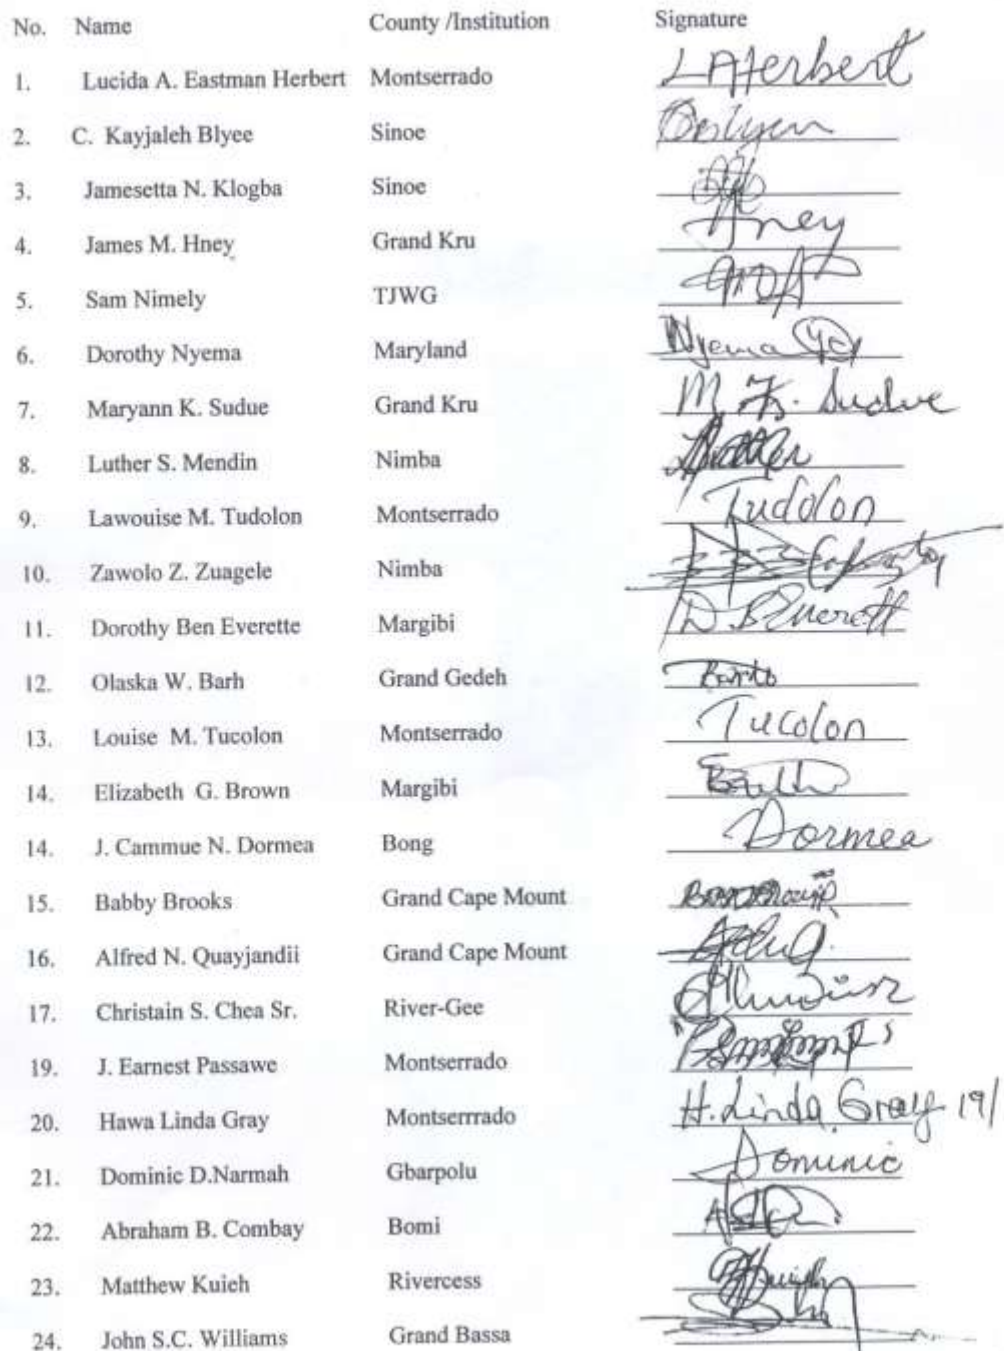 No. Name County /Institution Signature
1. Lucida A. Eastman Herbert Montserrado LAHerbert
2. C. Kayjaleh Blyee Sinoe
3. Jamesetta N. Klogba Sinoe
4. James M. Hney Grand Kru Hney
5. Sam Nimely TJWG
6. Dorothy Nyema Maryland Nyema
7. Maryann K. Sudue Grand Kru M. K. Sudue
8. Luther S. Mendin Nimba
9. Lawouise M. Tudolon Montserrado Tudolon
10. Zawolo Z. Zuagele Nimba
11. Dorothy Ben Everette Margibi D. B Everett
12. Olaska W. Barh Grand Gedeh
13. Louise M. Tucolon Montserrado Tucolon
14. Elizabeth G. Brown Margibi
14. J. Cammue N. Dormea Bong Dormea
15. Babby Brooks Grand Cape Mount
16. Alfred N. Quayjandii Grand Cape Mount
17. Christain S. Chea Sr. River-Gee
19. J. Earnest Passawe Montserrado
20. Hawa Linda Gray Montserrrado H. Linda Gray 19/
21. Dominic D.Narmah Gbarpolu Dominic
22. Abraham B. Combay Bomi
23. Matthew Kuieh Rivercess
24. John S.C. Williams Grand Bassa